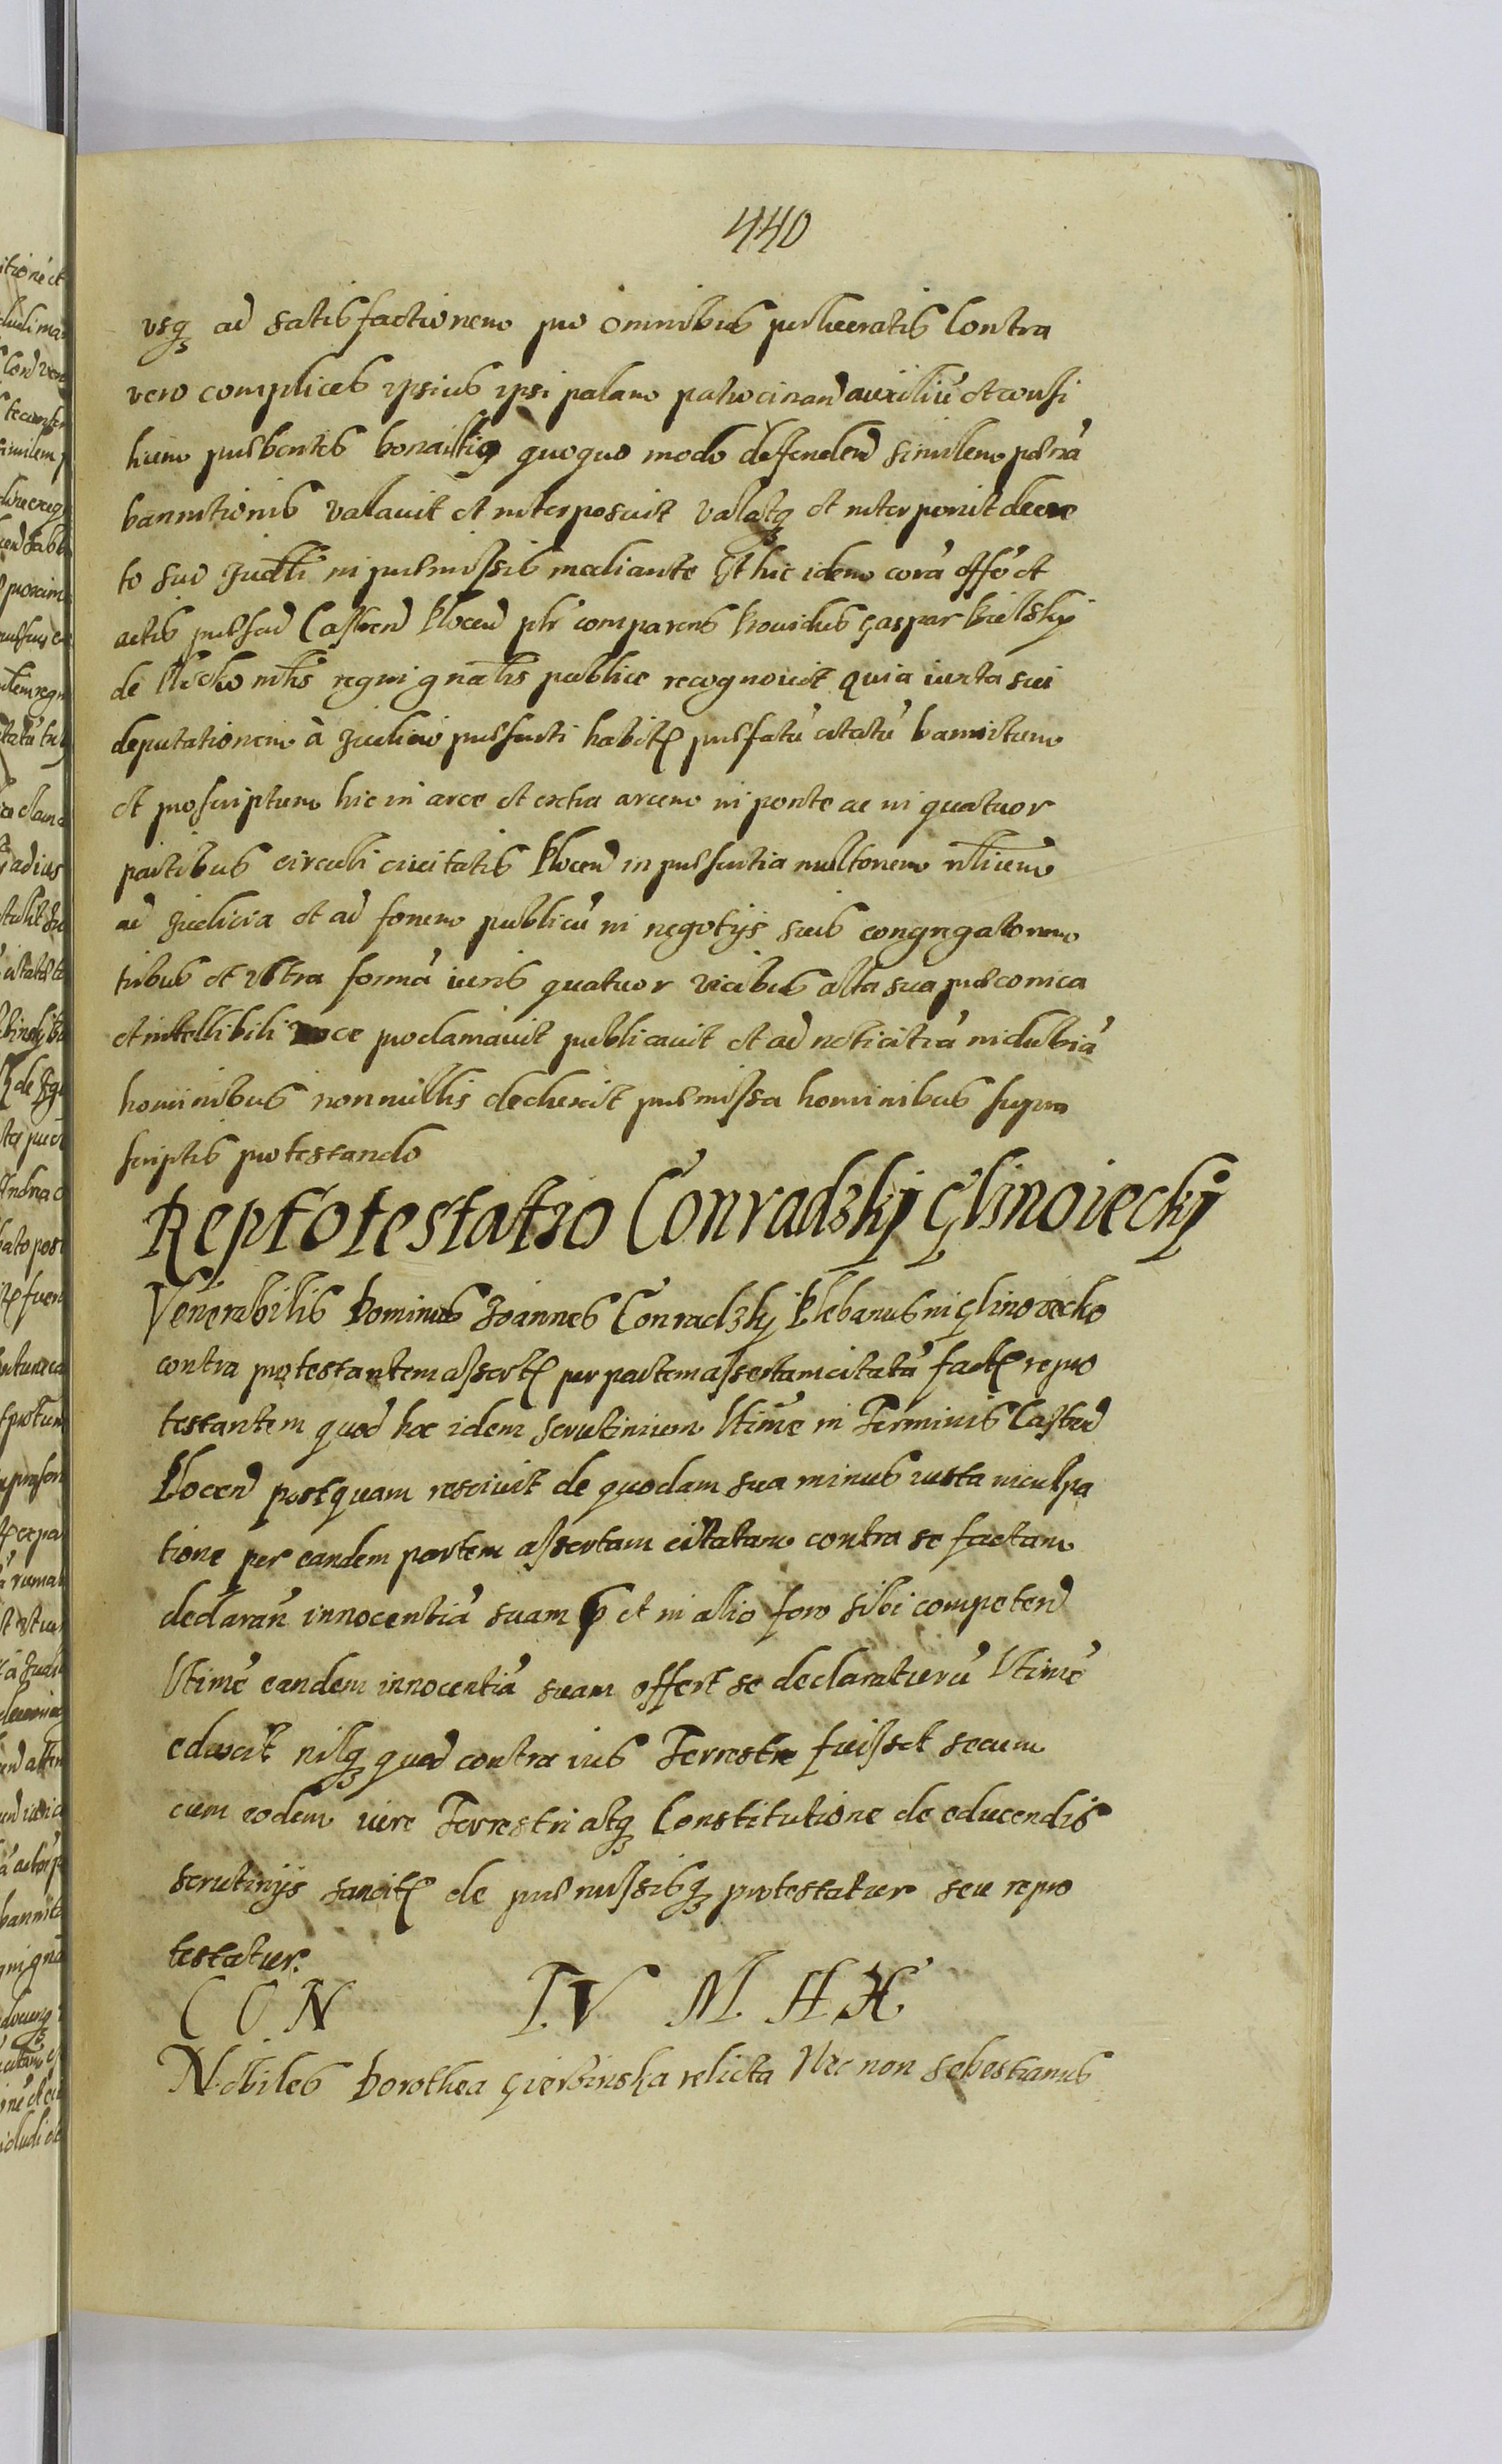 440
vsq₃ ad satisfactionem pro omnibus perlucratis Contra
vero complices ipsius ipsi palam patrocinan auxiliũ et consi
lium prębentes bonaq₃ quoquo modo defenden similem pœnã
bannitionis valavit et interposuit valatq₃ et interponit decre
to suo Judli in pręmissis mediante Et hic idem corã offō et
actis pręsen Castren Plocen plr comparens Providus Gaspar Bielskij
de Plocko mtlis regni gnalis publice recognovit quia iuxta sui
deputationem à Judicio pręsenti habit pręfatũ citatũ bannitum
et proscriptum hic in arce et extra arcem in ponte ac in quatuor
partibus circuli civitatis Plocen in pręsentia multorum nlium
ad Judicia et ad forum publicũ in negotijs suis congregatorum
tribus et ultra formã iuris quatuor vicibus alta sua pręconica
et intellibili voce proclamavit publicavit et ad noticiã indubiã
hominibus nonnullis deduxit pręmissa hominibus supra
scriptis protestando
Reprotestatio Conradzkj Glinoieckj
Venerabilis Dominus Joannes Conradzkj Plebanus in Glinoiecko
contra protestantem assert per partem assertam citatã fact repro
testantem quod hoc idem scrutinium ltime in Terminis Castren
Plocen postquam rescivit de quodam sua minus iusta inculpa
tione per eandem partem assertam citatam contra se factam
declaran innocentiã suam et in alio foro sibi competen
ltime eandem innocentiã suam offert se declaraturũ ltime
eduxit nilq₃ quod contra ius Terrestre fuisset secum
cum eodem iure Terrestri atq₃ Constitutione de educendis
scrutinijs sancit de pręmissisq₃ protestatur seu repro
testatur.
C O N T. V M. A X
Nobiles Dorothea Gierbinska relicta Nec non Sebestianus